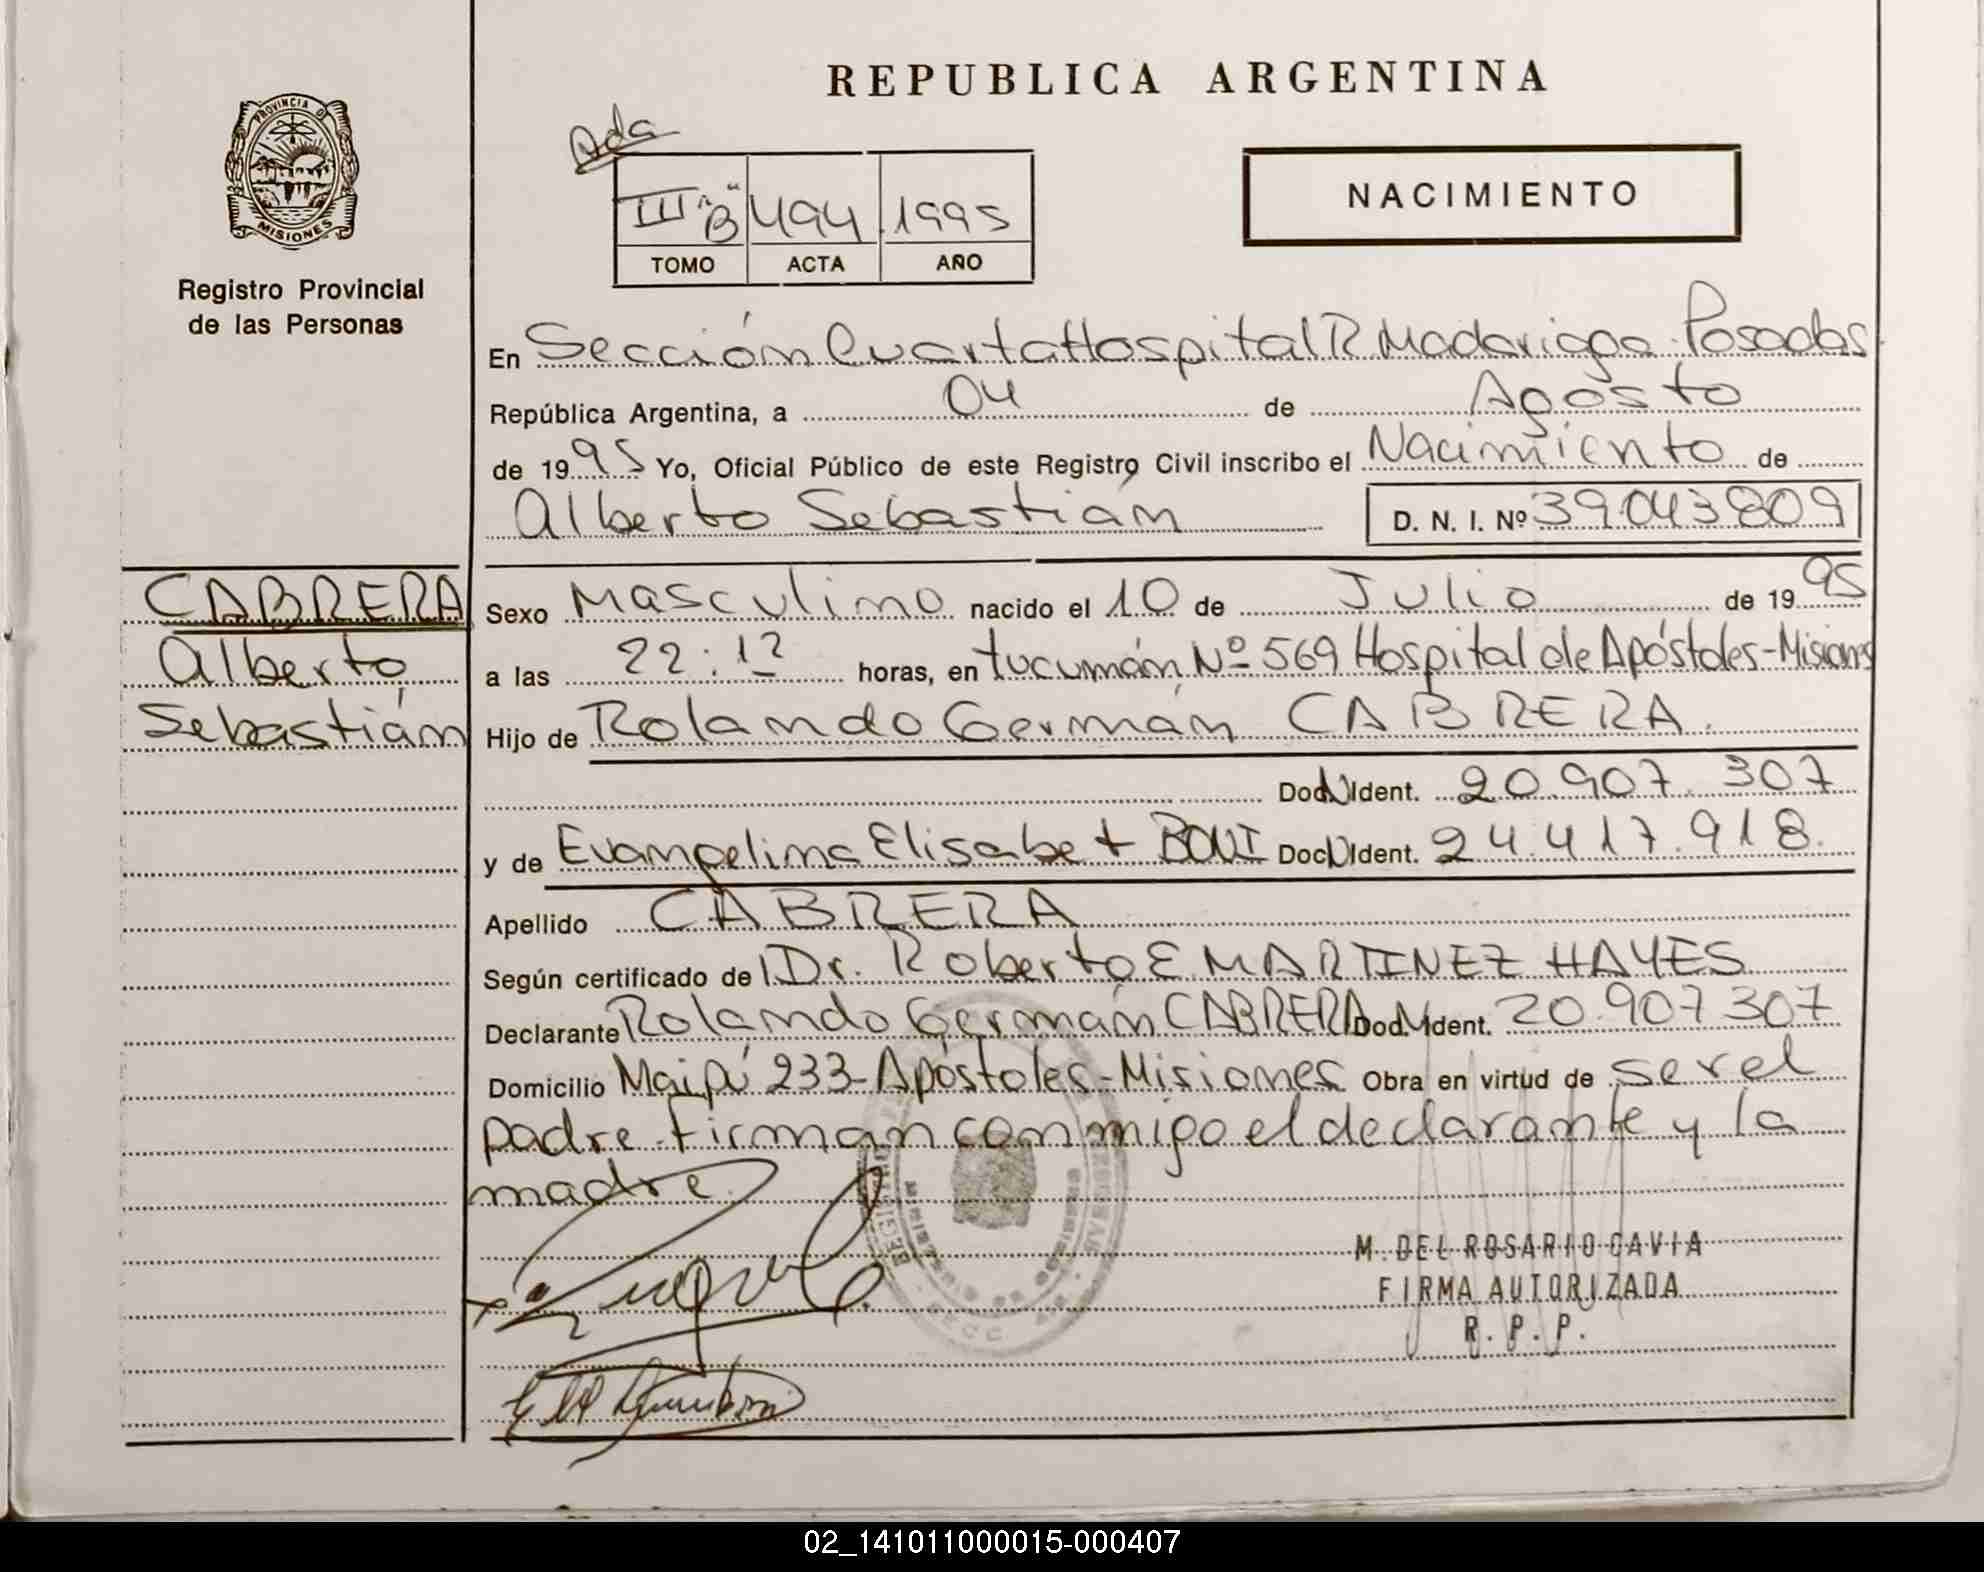 REPUBLICA ARGENTINA
PROVINCIA D
MISIONES
Registro Provincial
de las Personas
Ada
III "B" 494 1995
TOMO ACTA AÑO
NACIMIENTO
En Sección Cuarta Hospital R Madariaga - Posadas
República Argentina, a 04 de Agosto
de 1995 Yo, Oficial Público de este Registro Civil inscribo el Nacimiento de
Alberto Sebastián D. N. I. Nº 39.043.809
CABRERA
Alberto
Sebastián
Sexo Masculino nacido el 10 de Julio de 1995
a las 22:12 horas, en tucumán Nº 569 Hospital de Apóstoles-Misiones
Hijo de Rolando Germán CABRERA.
Doc. Ident. 20.907.307
y de Evangelina Elisabet Doc. Ident. 24.417.918.
Apellido CABRERA
Según certificado de Dr. Roberto E MARTINEZ HAYES
Declarante Rolando Germán CABRERA Doc. Ident. 20.907307
Domicilio Maipú 233-Apóstoles-Misiones Obra en virtud de ser el
padre. Firman conmigo el declarante y la
madre.
M. DEL ROSARIO CAVIA
FIRMA AUTORIZADA
R. P. P.
02_141011000015-000407